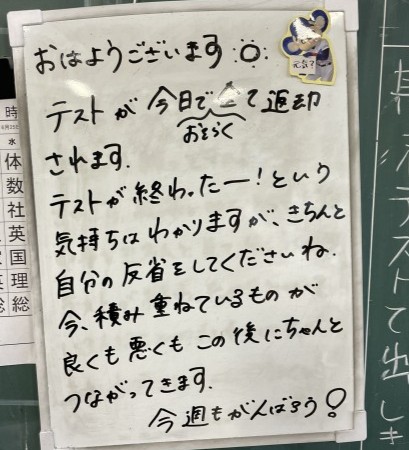 おはようございます
元気?
テストが今日で全て返却
おそらく
されます.
テストが終わったー!という
気持ちはわかりますが、きちんと
自分の反省をしてくださいね.
今、積み重ねているものが
良くも悪くもこの後にちゃんと
つながってきます.
今週もがんばろう!
時
6月25日
水
体
数
社
英
国
理
総
テストで出
しき